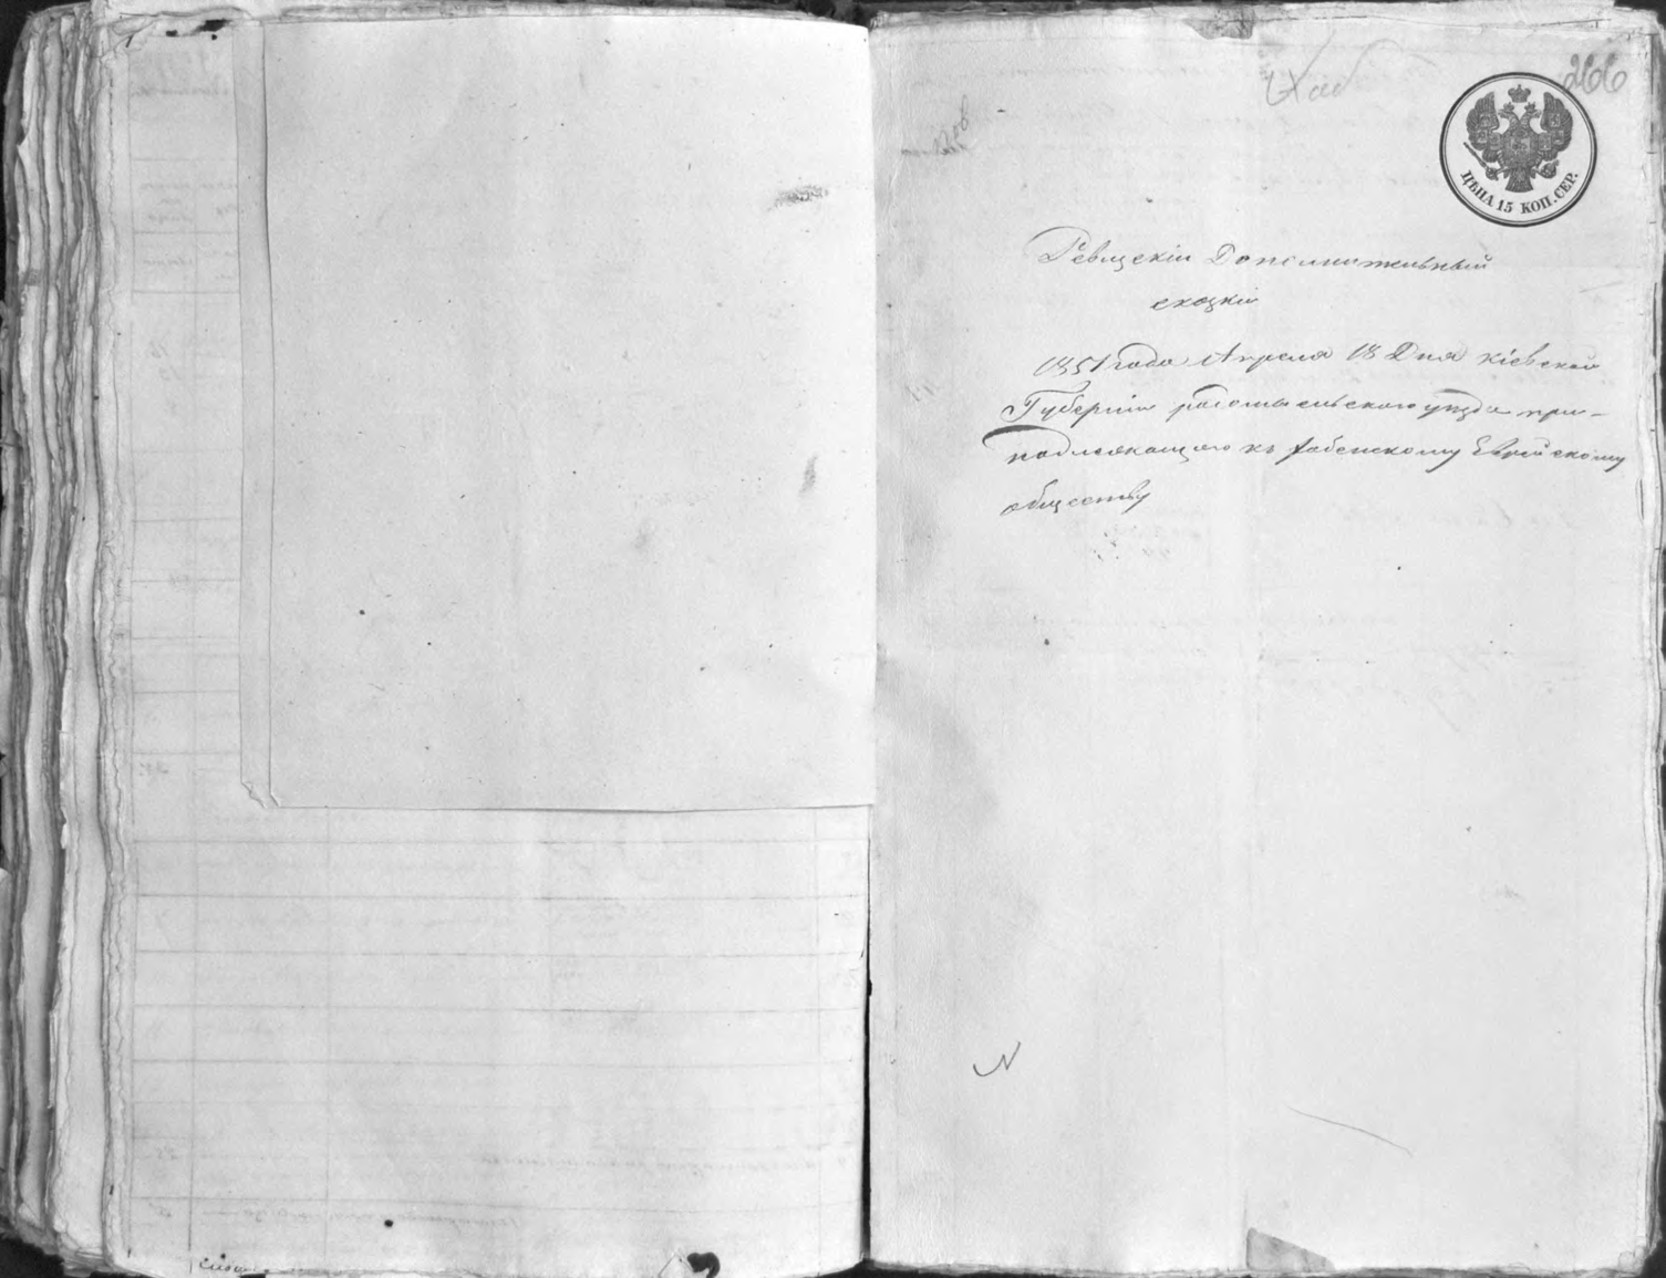 266
ЦѢНА 15 КОП. СЕР.
Ревизскіи Дополнительный
сказки
1851 года Апреля 18 Дня Кіевской
Губерніи радомысльского уезда при-
надлежащого къ хабенскому Еврейскому
обществу
N